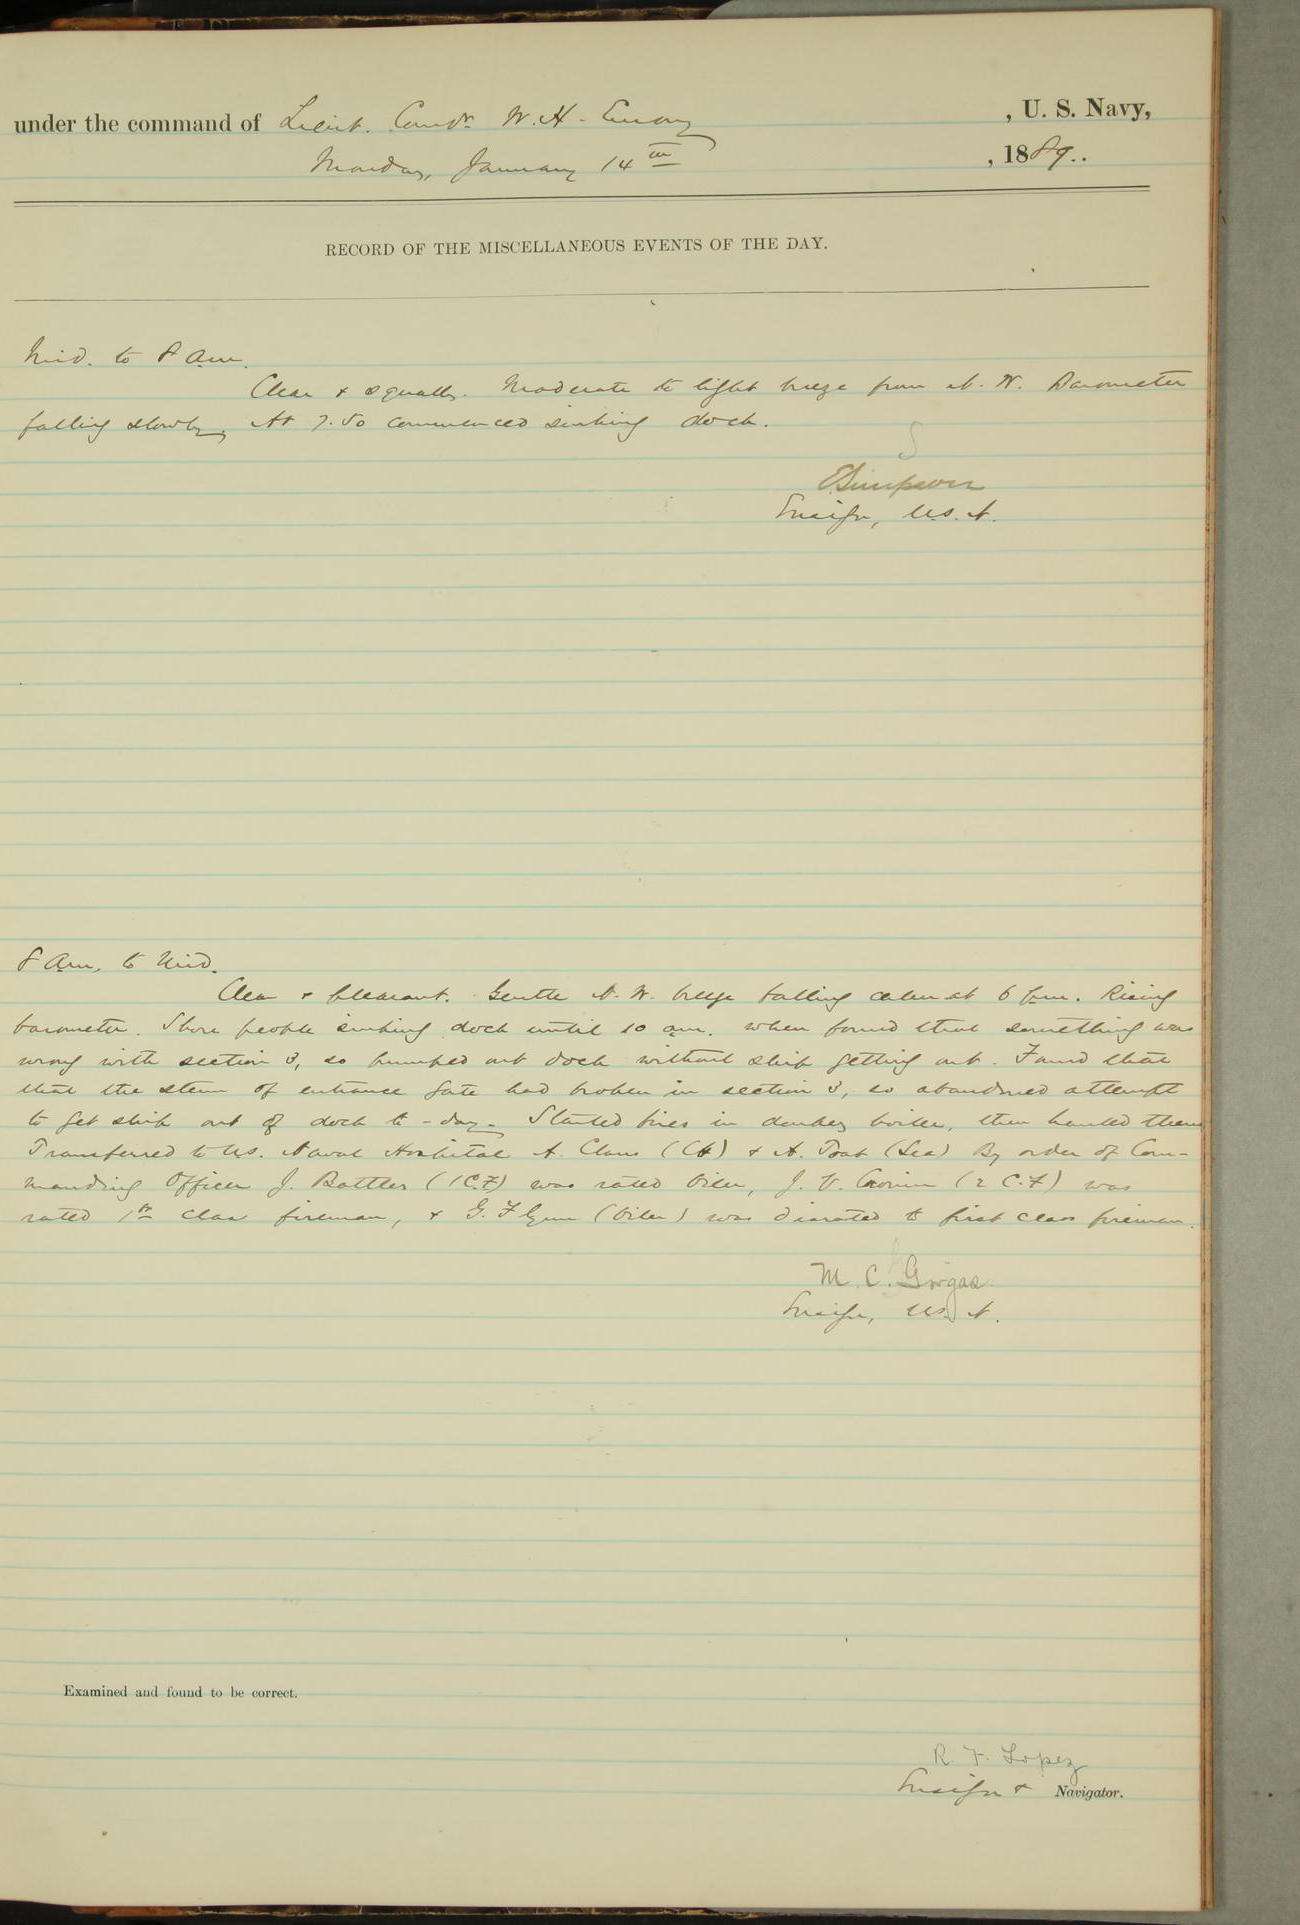 under the command of Lieut. Comdr. W. H. Emory, U. S. Navy,
Monday, January 14th, 1889.
RECORD OF THE MISCELLANEOUS EVENTS OF THE DAY.
Mid. to 8 a.m.
Clear & squally. Moderate to light breeze from N. W. Barometer
falling slowly. At 7.50 commenced sinking dock.
E Simpson
Ensign, U.S. N.
8 a.m. to Mid.
Clear & pleasant. Gentle N. W. breeze falling calm at 6 p.m. Rising
barometer. Shore people sinking dock until 10 a.m. when found that something was
wrong with section 3, so pumped out dock without ship getting out. Found that
that the stem of entrance gate had broken in section 3, so abandoned attempt
to get ship out of dock to-day. Started fires in donkey boiler, then hauled them
Transferred to U.S. Naval Hospital A. Claus (CH) & A. Toat (Sea) By order of Com-
manding Officer J. Battles (1C.F) was rated Oiler, J. V. Cronin (2 C.F) was
rated 1st class fireman, & G. Flynn (Oiler) was disrated to first class fireman.
M. C. Gorgas
Ensign, U.S. N.
Examined and found to be correct.
R. F. Lopez
Ensign & Navigator.